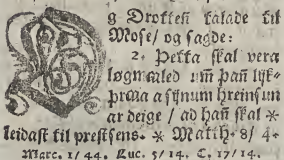 g Drotteñ talade til
Mose/ og sagde:
2. Þetta skal vera
løgmaled um̃ þañ lijk-
þraa a sijnum hreinsun
ar deige / ad hañ skal *
leidast til prestsens. * Matth. 8/ 4.
Marc. 1/ 44. Luc. 5/ 14. C. 17/14.